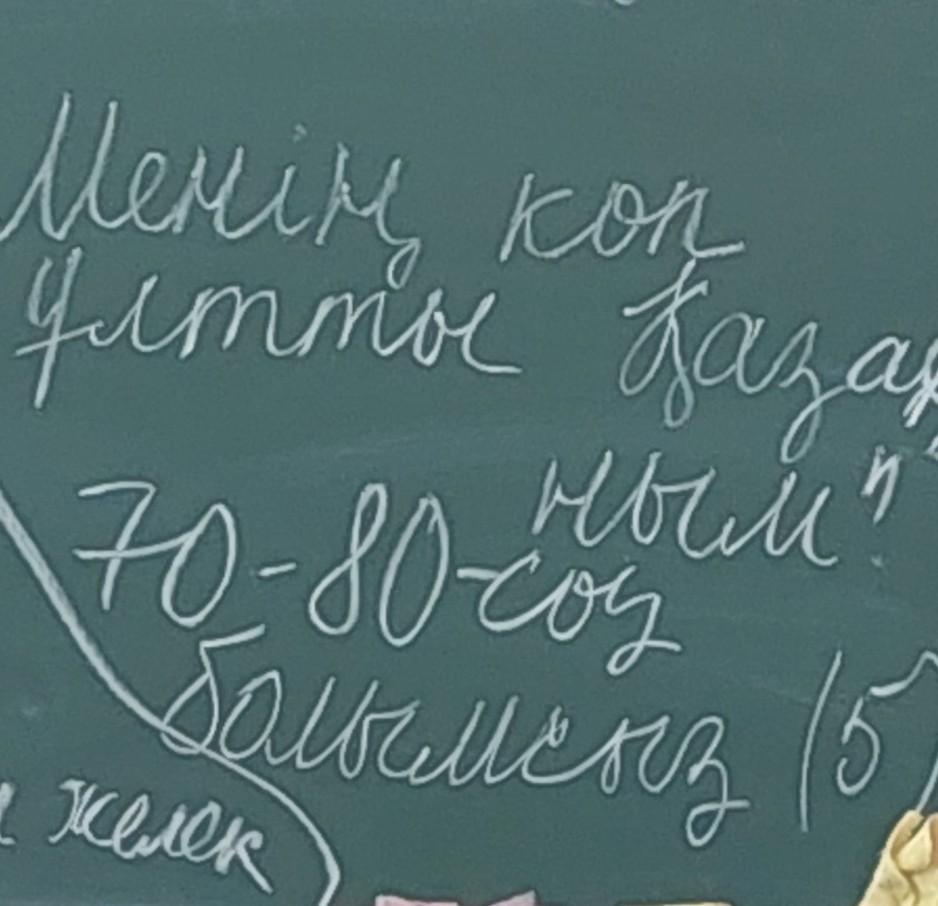 Менің көп
ұлтты Қазақ
ным"
70-80-сөз
болымсыз (5)
желек